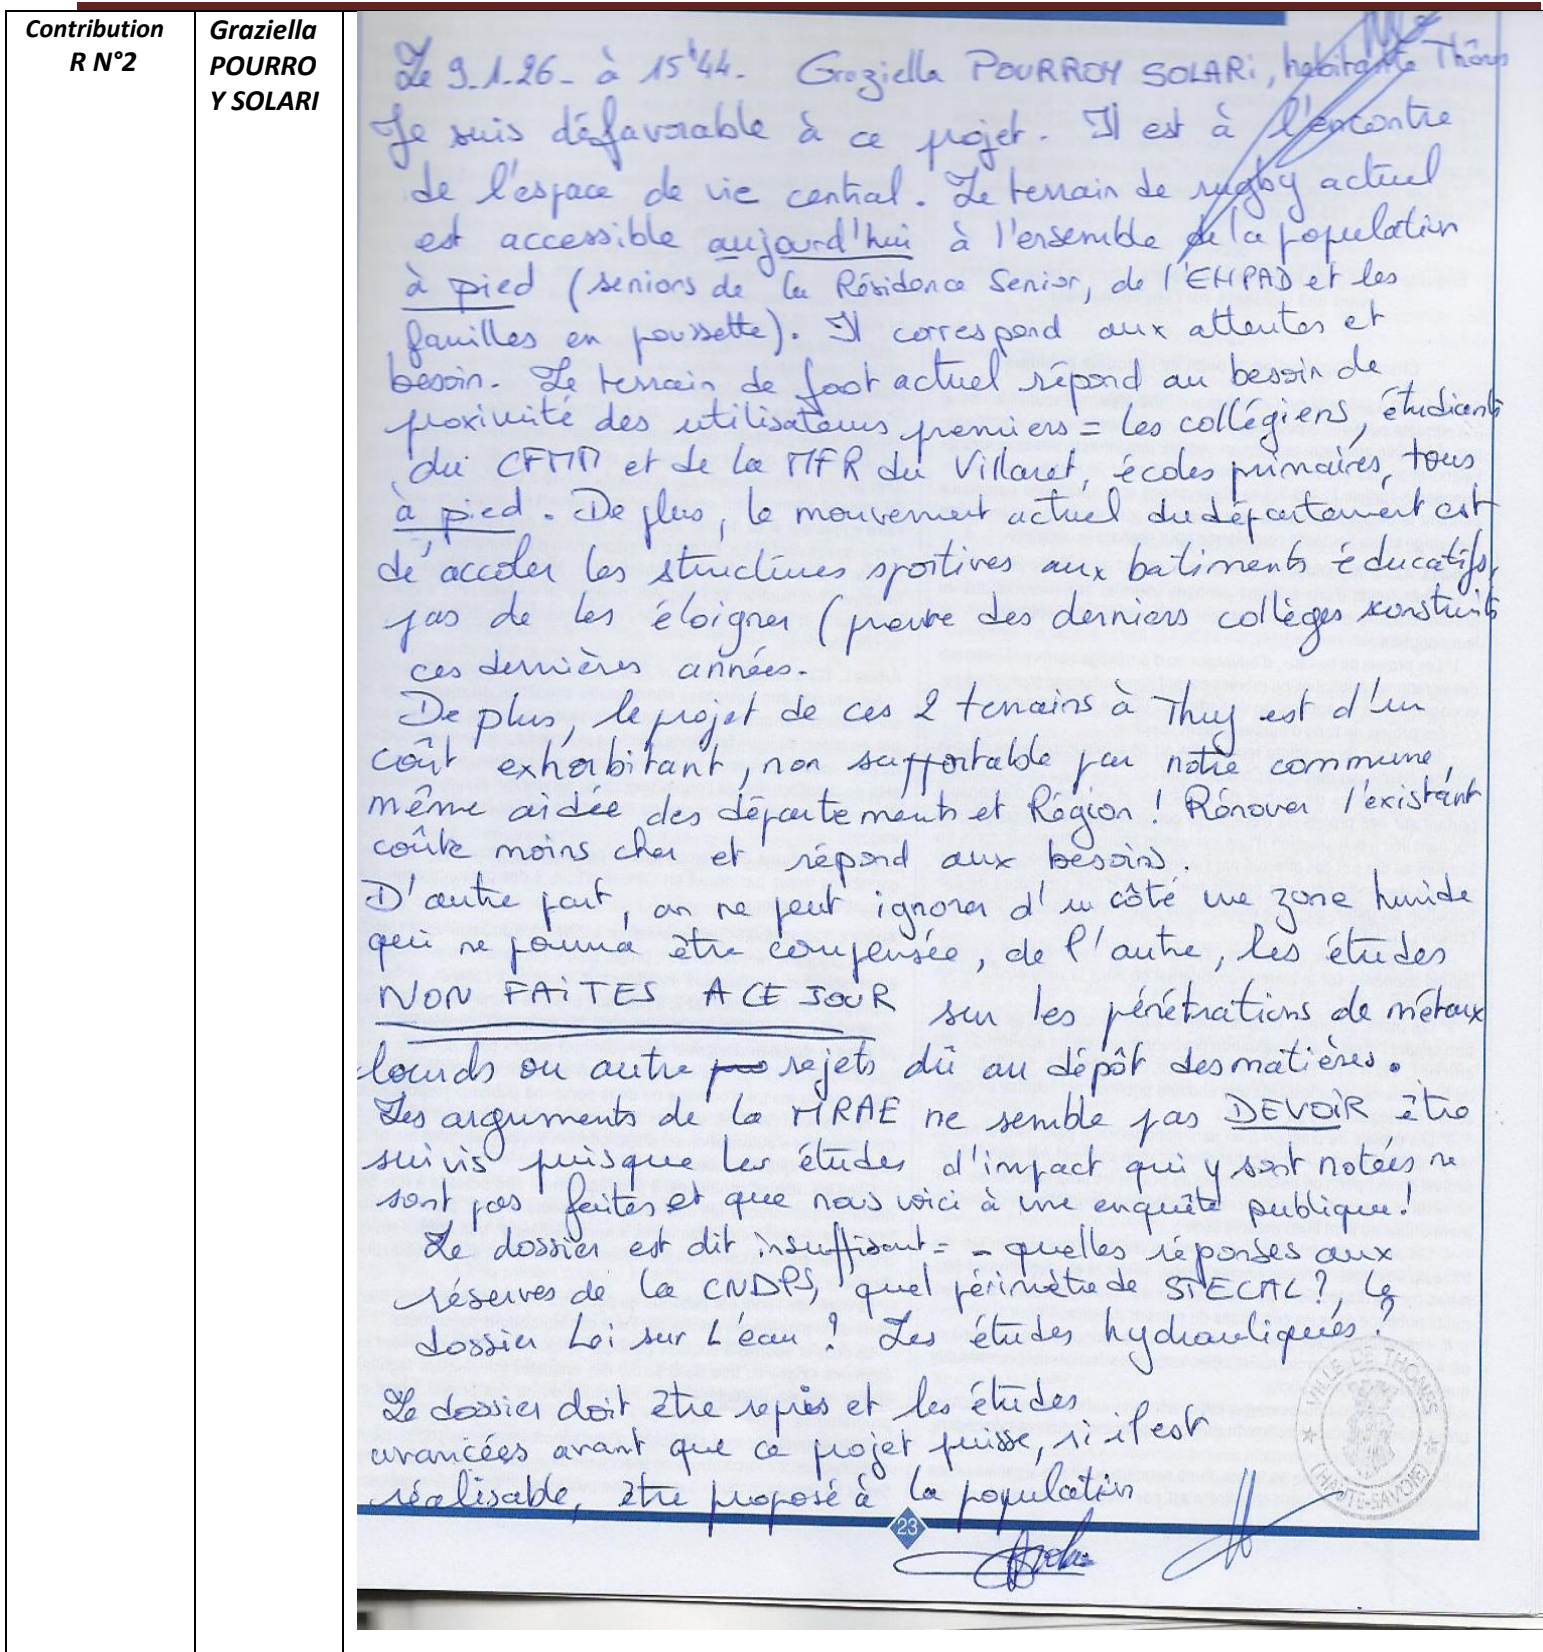 Contribution
R N°2
Graziella
POURRO
Y SOLARI
Le 9.1.26 - à 15h44. Graziella POURROY SOLARi, habitante Thônes
Je suis défavorable à ce projet. Il est à l'encontre
de l'espace de vie central. Le terrain de rugby actuel
est accessible aujourd'hui à l'ensemble de la population
à pied (seniors de la Résidence Senior, de l'EHPAD et les
familles en poussette). Il correspond aux attentes et
besoin. Le terrain de foot actuel répond au besoin de
proximité des utilisateurs premiers = les collégiens, étudiants
du CFMM et de la MFR du Villaret, écoles primaires, tous
à pied. De plus, le mouvement actuel du département est
d'accoler les structures sportives aux batiments éducatifs,
pas de les éloigner (preuve des derniers collèges construits
ces dernières années.
De plus, le projet de ces 2 terrains à Thuy est d'un
coût exhorbitant, non supportable par notre commune,
même aidée des départements et Région ! Rénover l'existant
coûte moins cher et répond aux besoins.
D'autre part, on ne peut ignorer d'un côté une zone humide
qui ne pourra être compensée, de l'autre, les études
NON FAiTES A CE JOUR sur les pénétrations de métaux
lourds ou autre rejets dû au dépôt des matières.
Les arguments de la MRAE ne semble pas DEVOiR être
suivis puisque les études d'impact qui y sont notées ne
sont pas faites et que nous voici à une enquête publique!
Le dossier est dit insuffisant = - quelles réponses aux
réserves de la CNDPS, quel périmètre de STECAL ?, le
dossier Loi sur L'éau ? Les études hydrauliques ?
Le dossier doit être repris et les études
avancées avant que ce projet puisse, si il est
réalisable, être proposé à la population
23
VILLE DE THÔNES
(HAUTE-SAVOIE)